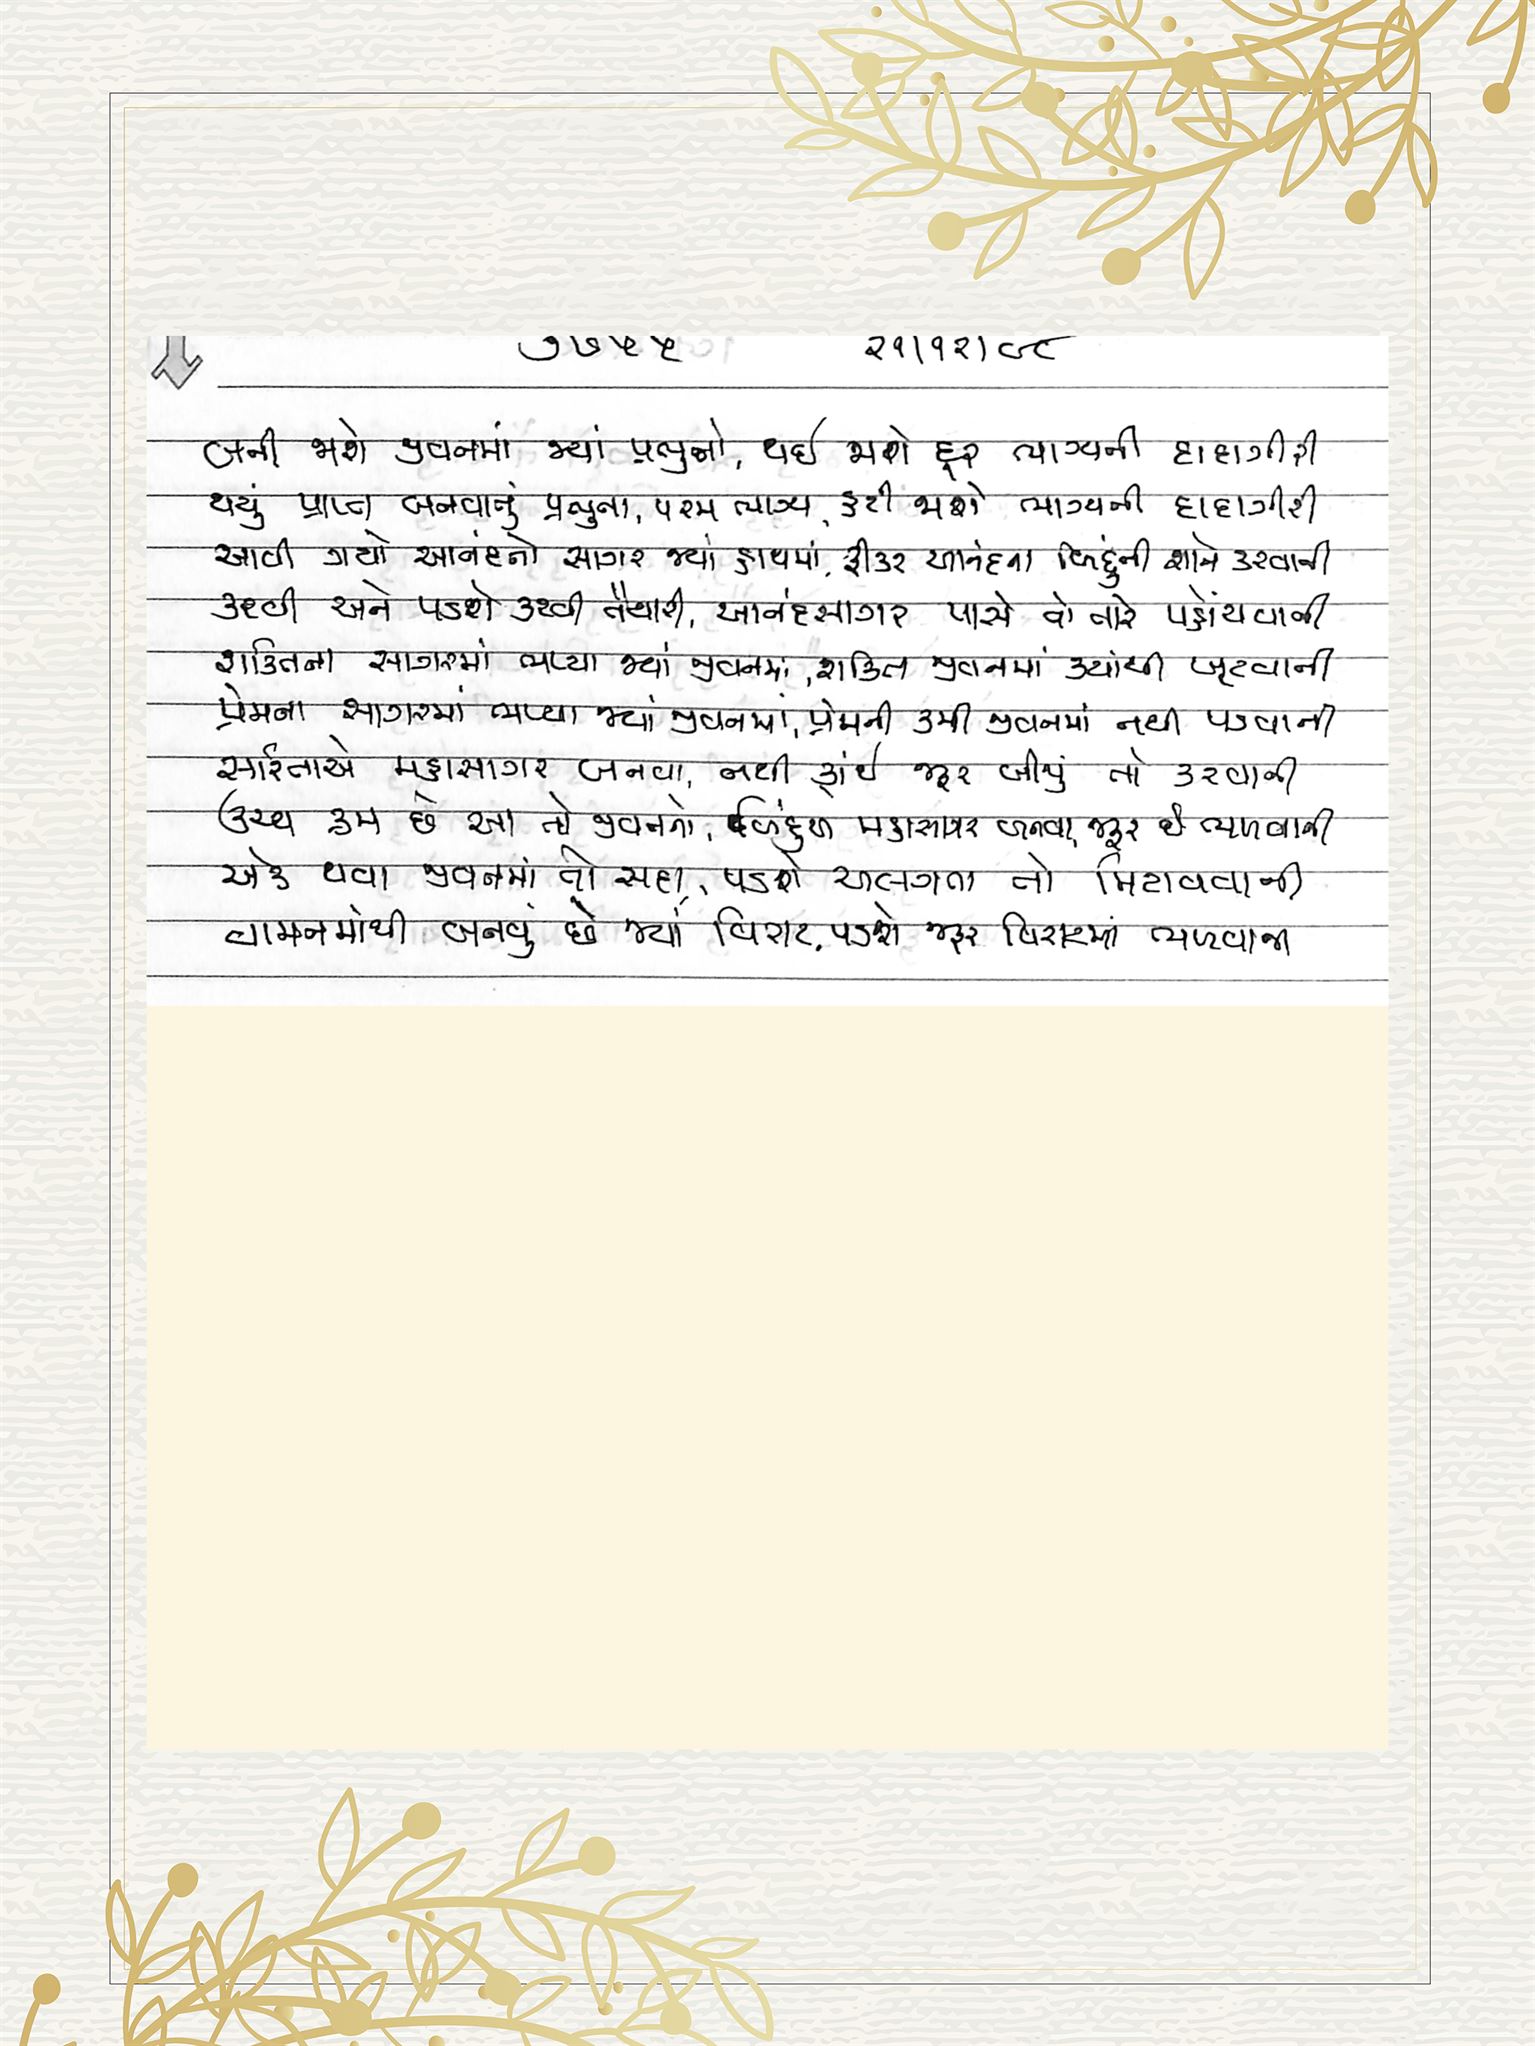 ૭૭૫૫ ૨૧/૧૨/૯૮
બની જાશે જીવનમાં જ્યાં પ્રભુનો, થઈ જાશે દૂર ભાગ્યની દાદાગીરી
થયું પ્રાપ્ત બનવાનું પ્રભુના, પરમ ભાગ્ય, હટી જાશે ભાગ્યની દાદાગીરી
આવી ગયો આનંદનો સાગર જ્યાં હાથમાં, ફીકર આનંદના બિંદુની શાને કરવાની
કરવી અને પડશે કરવી તૈયારી, આનંદસાગર પાસે તો તારે પહોંચવાની
શક્તિના સાગરમાં ભળ્યા જ્યાં જીવનમાં, શક્તિ જીવનમાં ક્યાંથી ખૂટવાની
પ્રેમના સાગરમાં ભળ્યા જ્યાં જીવનમાં, પ્રેમની કમી જીવનમાં નથી પડવાની
સરિતાએ મહાસાગર બનવા, નથી કાંઈ જરૂર બીજું તો કરવાની
ઉચ્ચ ક્રમ છે આ તો જીવનનો, બિંદુએ મહાસાગર બનવા, જરૂર છે ભળવાની
એક થવા જીવનમાં તો સદા, પડશે અલગતા તો મિટાવવાની
વામનમાંથી બનવું છે જ્યાં વિરાટ, પડશે જરૂર વિરાટમાં ભળવાની